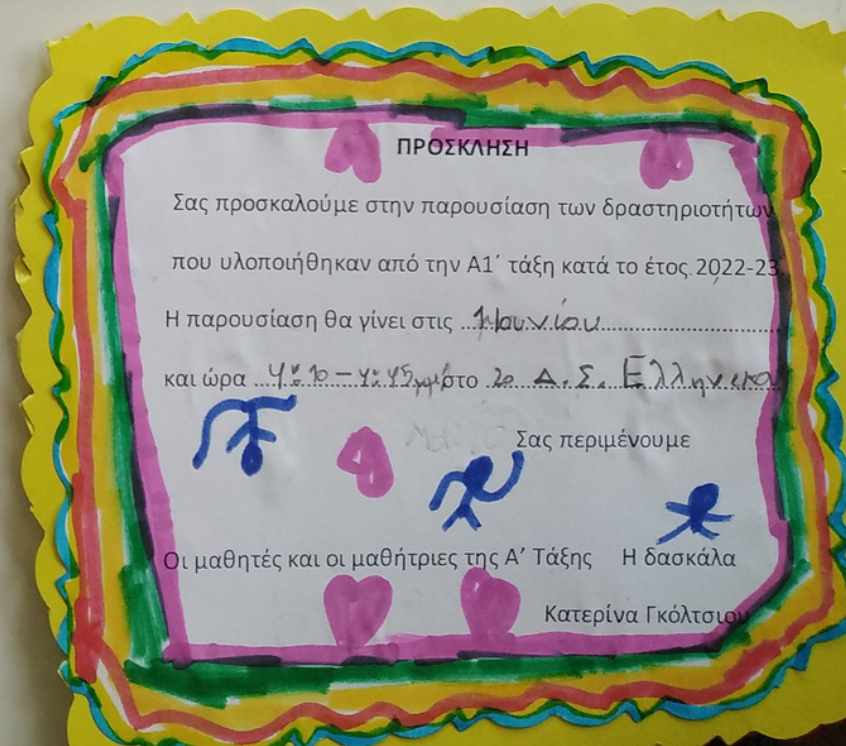 ΠΡΟΣΚΛΗΣΗ
Σας προσκαλούμε στην παρουσίαση των δραστηριοτήτων
που υλοποιήθηκαν από την Α1΄ τάξη κατά το έτος 2022-23
Η παρουσίαση θα γίνει στις ......Ιουνίου......
και ώρα ......στο 2ο Δ.Σ. Ελληνικο
Σας περιμένουμε
Οι μαθητές και οι μαθήτριες της Α’ Τάξης Η δασκάλα
Κατερίνα Γκόλτσιου